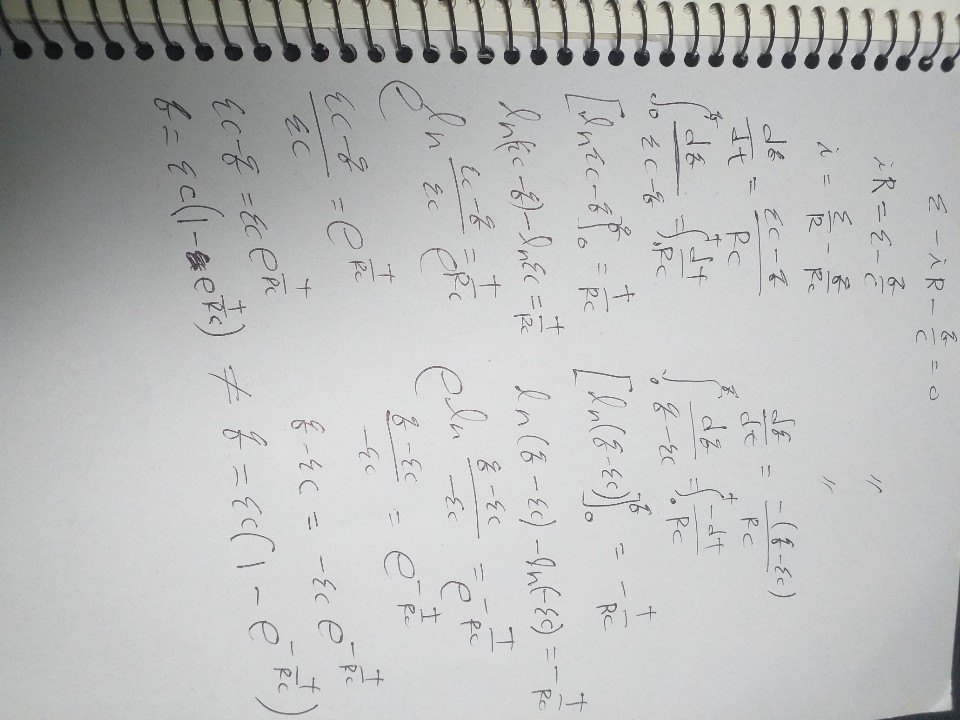 ε - iR - q/c = 0
iR = ε - q/c
i = ε/R - q/Rc
dq/dt = (εc - q)/Rc
∫₀^q dq/(εc - q) = ∫₀^t dt/Rc
[ln εc - q]₀^q = t/Rc
ln(εc - q) - ln εc = t/Rc
e^(ln (εc - q)/εc) = e^(t/Rc)
(εc - q)/εc = e^(t/Rc)
εc - q = εc e^(t/Rc)
q = εc(1 - e^(t/Rc))
"
"
dq/dt = -(q - εc)/Rc
∫₀^q dq/(q - εc) = ∫₀^t -dt/Rc
[ln(q - εc)]₀^q = -t/Rc
ln(q - εc) - ln(-εc) = -t/Rc
e^(ln (q - εc)/-εc) = e^(-t/Rc)
(q - εc)/-εc = e^(-t/Rc)
q - εc = -εc e^(-t/Rc)
≠ q = εc(1 - e^(-t/Rc))